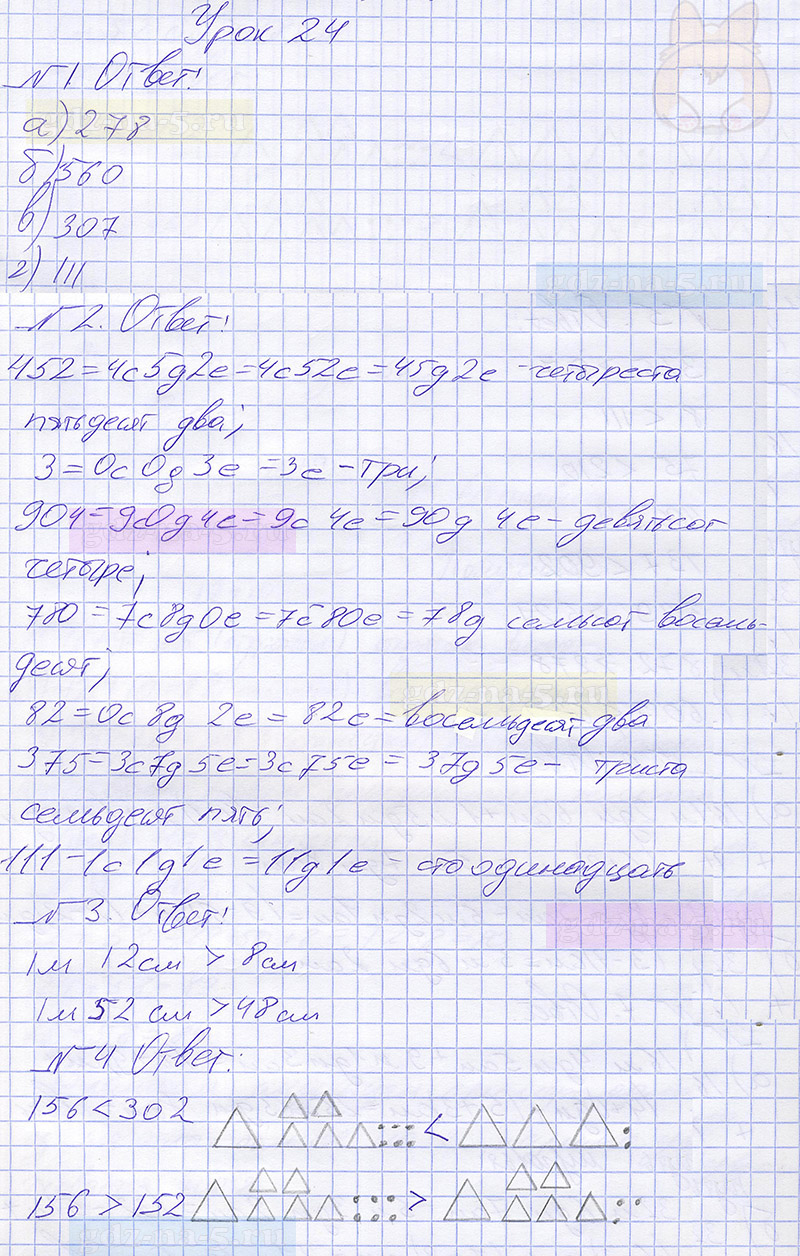 Урок 24
№1 Ответ:
а) 278
б) 560
в) 307
г) 111
№2. Ответ:
452=4с5д2е=4с52е=45д2е - четыреста
пятьдесят два;
3=0с0д3е=3е-три;
904=9с0д4е=9с 4е=90д 4е- девятьсот
четыре;
780=7с8д0е=7с80е=78д семьсот восемь-
десят;
82=0с8д 2е=82е=восемьдесят два
375=3с7д5е=3с75е=37д5е- триста
семьдесят пять;
111-1с1д1е=11д1е- сто одинадцать
№3. Ответ:
1м 12см > 8см
1м 52 см >48см
№4 Ответ:
156<302 <
156>152 >
gdz-na-5.ru
gdz-na-5.ru